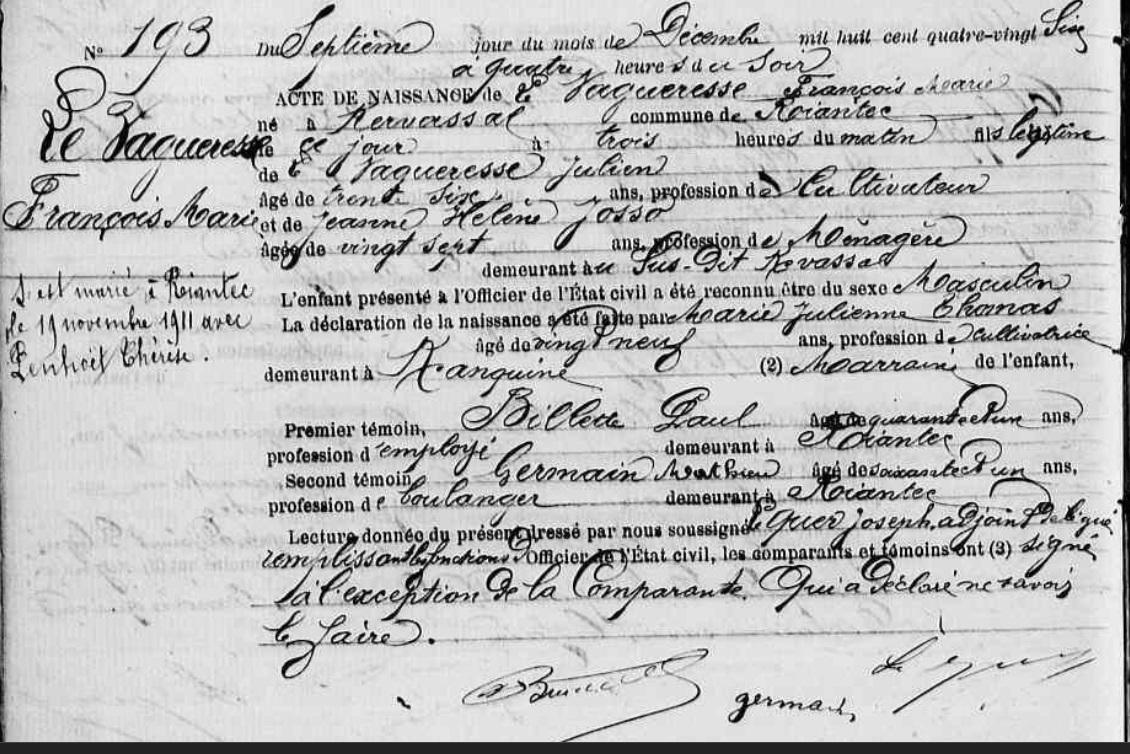 N° 193 Du Septième jour du mois de Décembre mil huit cent quatre-vingt Six
à quatre heures du Soir
ACTE DE NAISSANCE de Le Vagueresse François Marie
né à Kervassal commune de Riantec
le ce jour à trois heures du matin fils légitime
de Le Vagueresse Julien
âgé de trente six ans, profession de Cultivateur
et de Jeanne Hélène Josso
âgée de vingt sept ans, profession de Ménagère
demeurant au Sus-Dit Kevassal
L'enfant présenté à l'Officier de l'État civil a été reconnu être du sexe Masculin
La déclaration de la naissance a été faite par Marie Julienne
âgé de vingt neuf ans, profession de cultivatrice
demeurant à (2) Marraine de l'enfant,
Premier témoin, Billette Paul âgé de quarante et un ans,
profession d'employé demeurant à Riantec
Second témoin Germain Mathieu âgé de soixante et un ans,
profession de boulanger demeurant à Riantec
Lecture donnée du présent dressé par nous soussigné le Quer Joseph, adjoint Délégué
remplissant les fonctions d'Officier de l'État civil, les comparants et témoins ont (3) signé
à l'exception de la Comparante. Qui a Déclaré ne savoir
le faire.
germain
Le Vagueresse
François Marie
S'est marié à Riantec
le 19 novembre 1911 avec
Penhoët Thérèse.